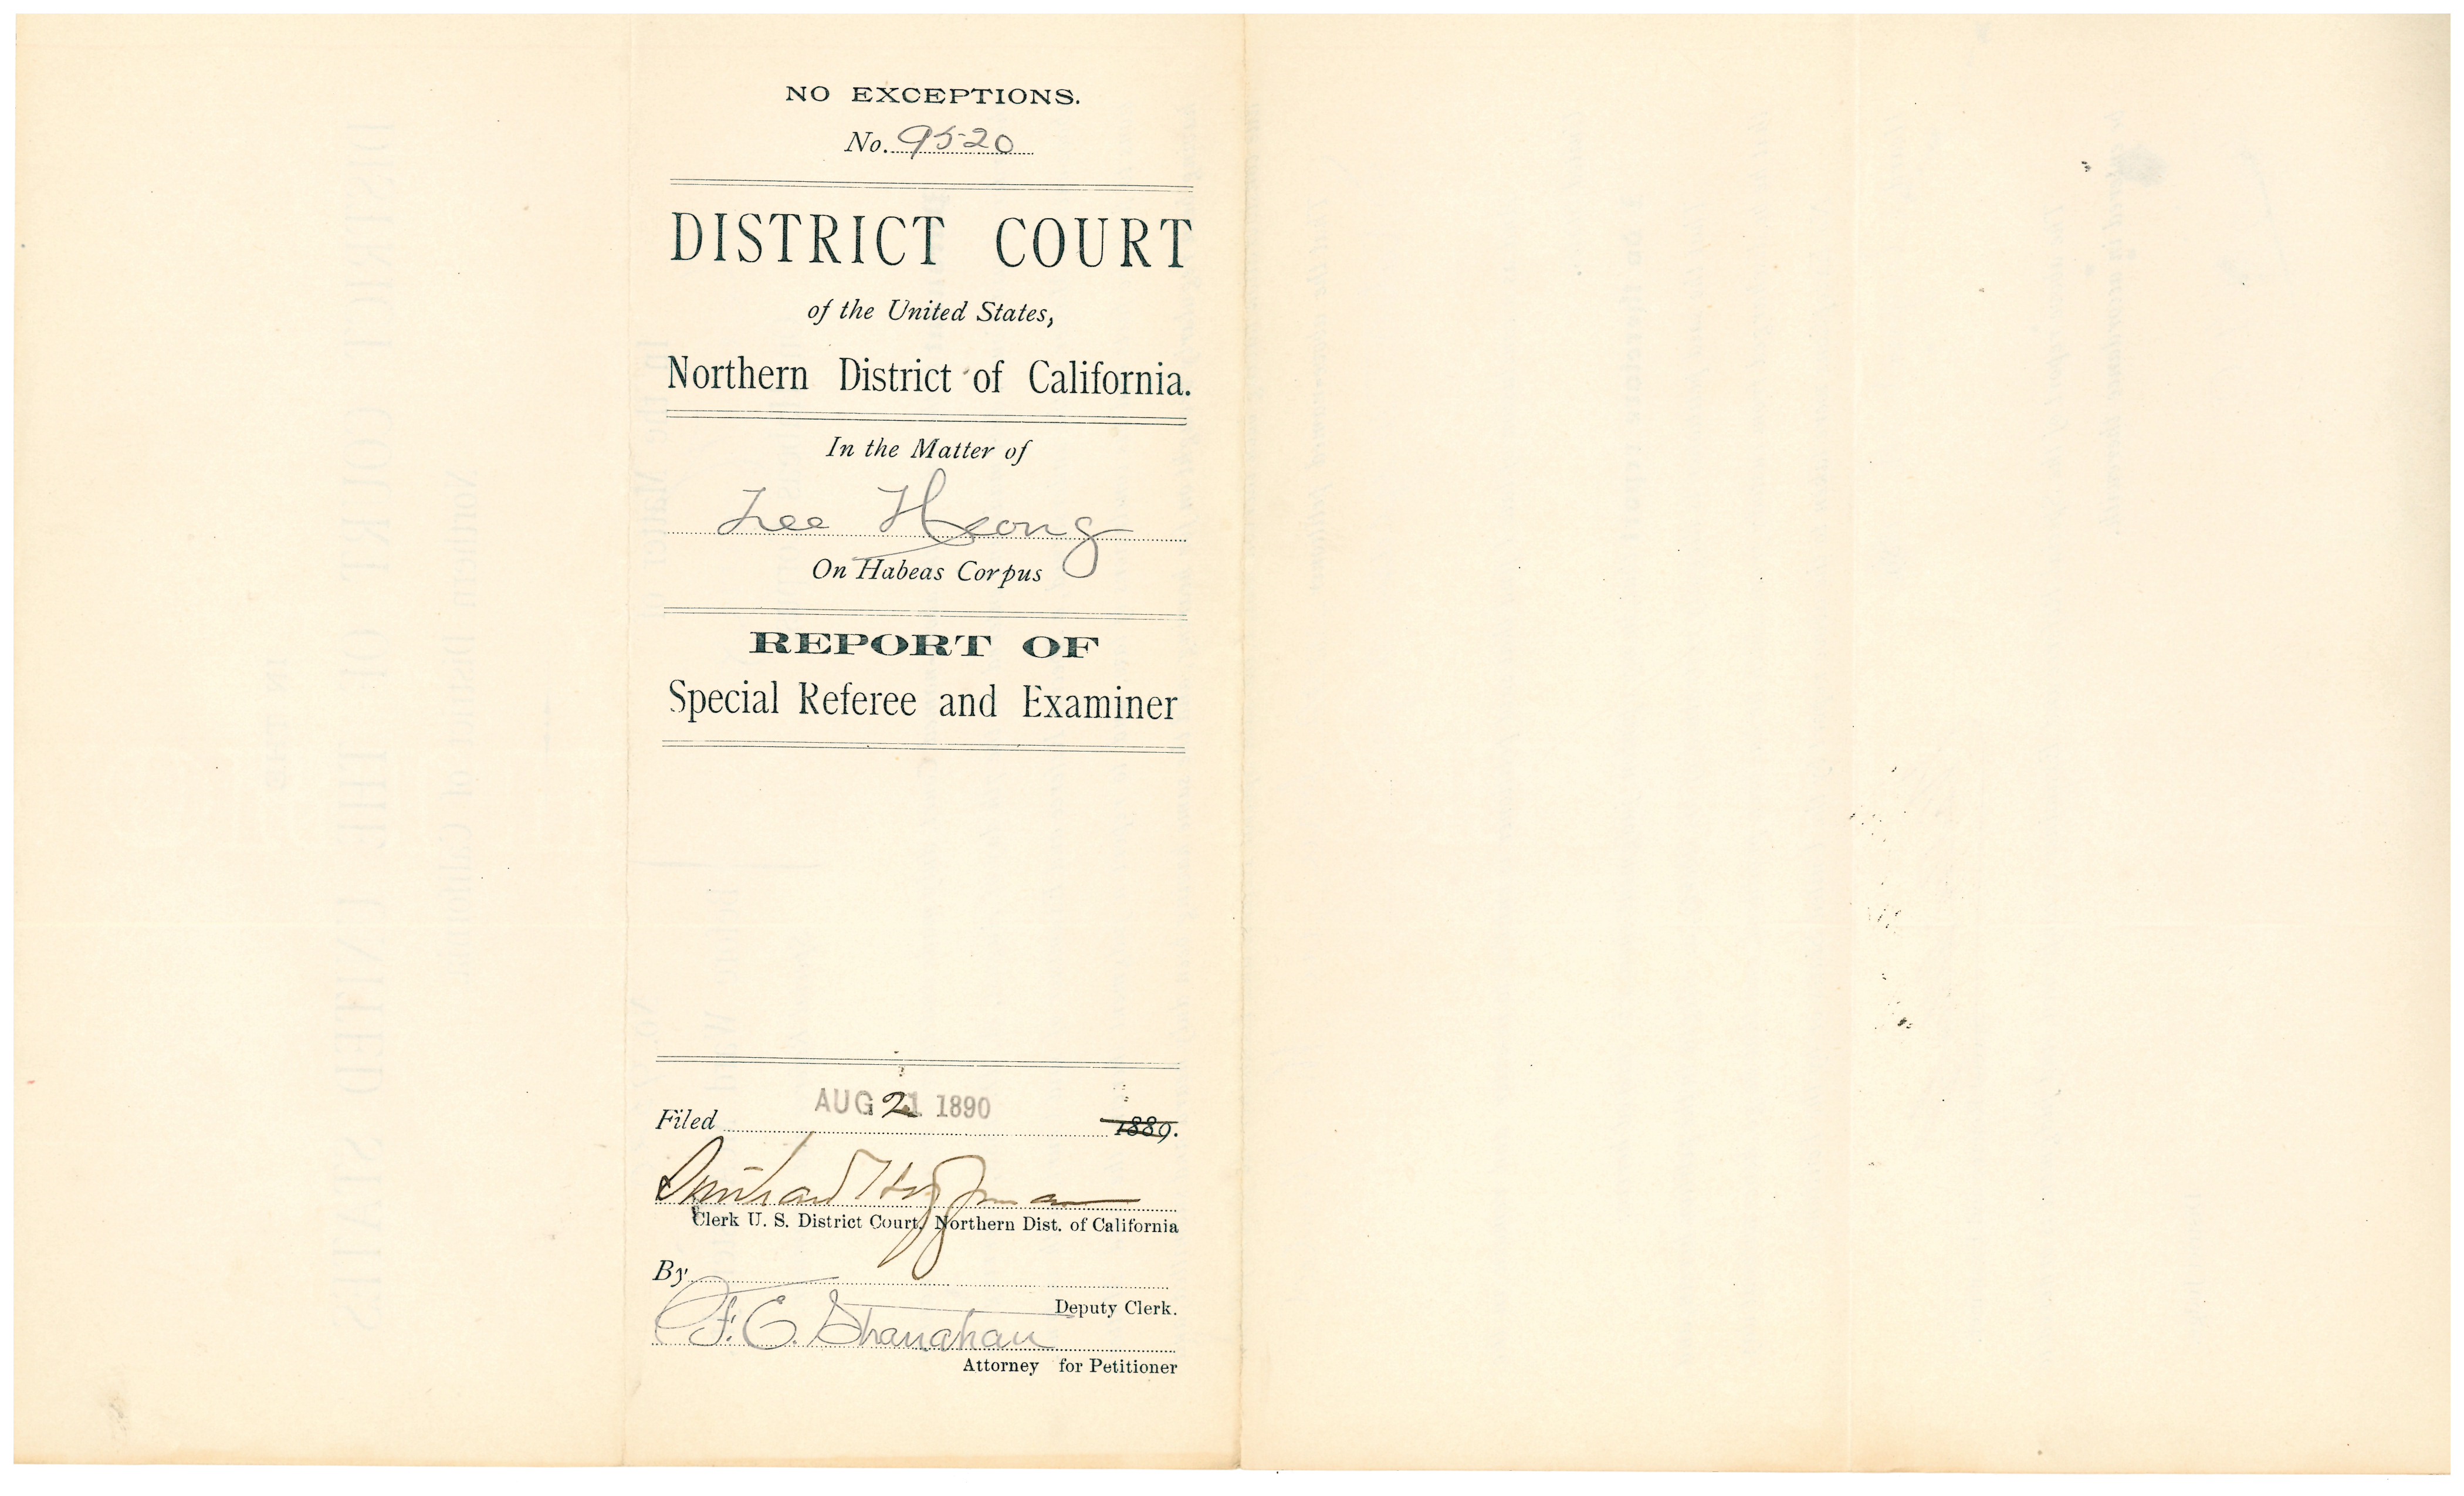 NO EXCEPTIONS.
No. 9520
DISTRICT COURT
of the United States,
Northern District of California.
In the Matter of
Lee Heong
On Habeas Corpus
REPORT OF
Special Referee and Examiner
AUG 2 1890
Filed 1889.
Clerk U. S. District Court, Northern Dist. of California
By
Deputy Clerk.
F. C. Shanahan
Attorney for Petitioner